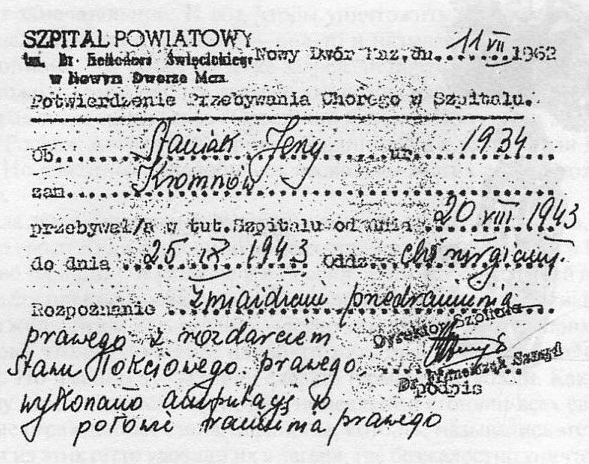 SZPITAL POWIATOWY
im. Dr Heliodora Święcickiego
w Nowym Dworze Maz.
Nowy Dwór Maz. dn. 11 VII 1962
Potwierdzenie Przebywania Chorego w Szpitalu.
Ob. Staniak Jerzy ur. 1934
zam. Kromnów
przebywał/a w tut. Szpitalu od dnia 20 VIII 1943
do dnia 25 IX 1943 Oddz. chirurgiczny.
Rozpoznanie Zmiażdżenie przedramienia
prawego z rozdarciem
Stawu łokciowego prawego
wykonano amputację w
połowie ramienia prawego
Dyrektor Szpitala
Dr Franciszek
podpis